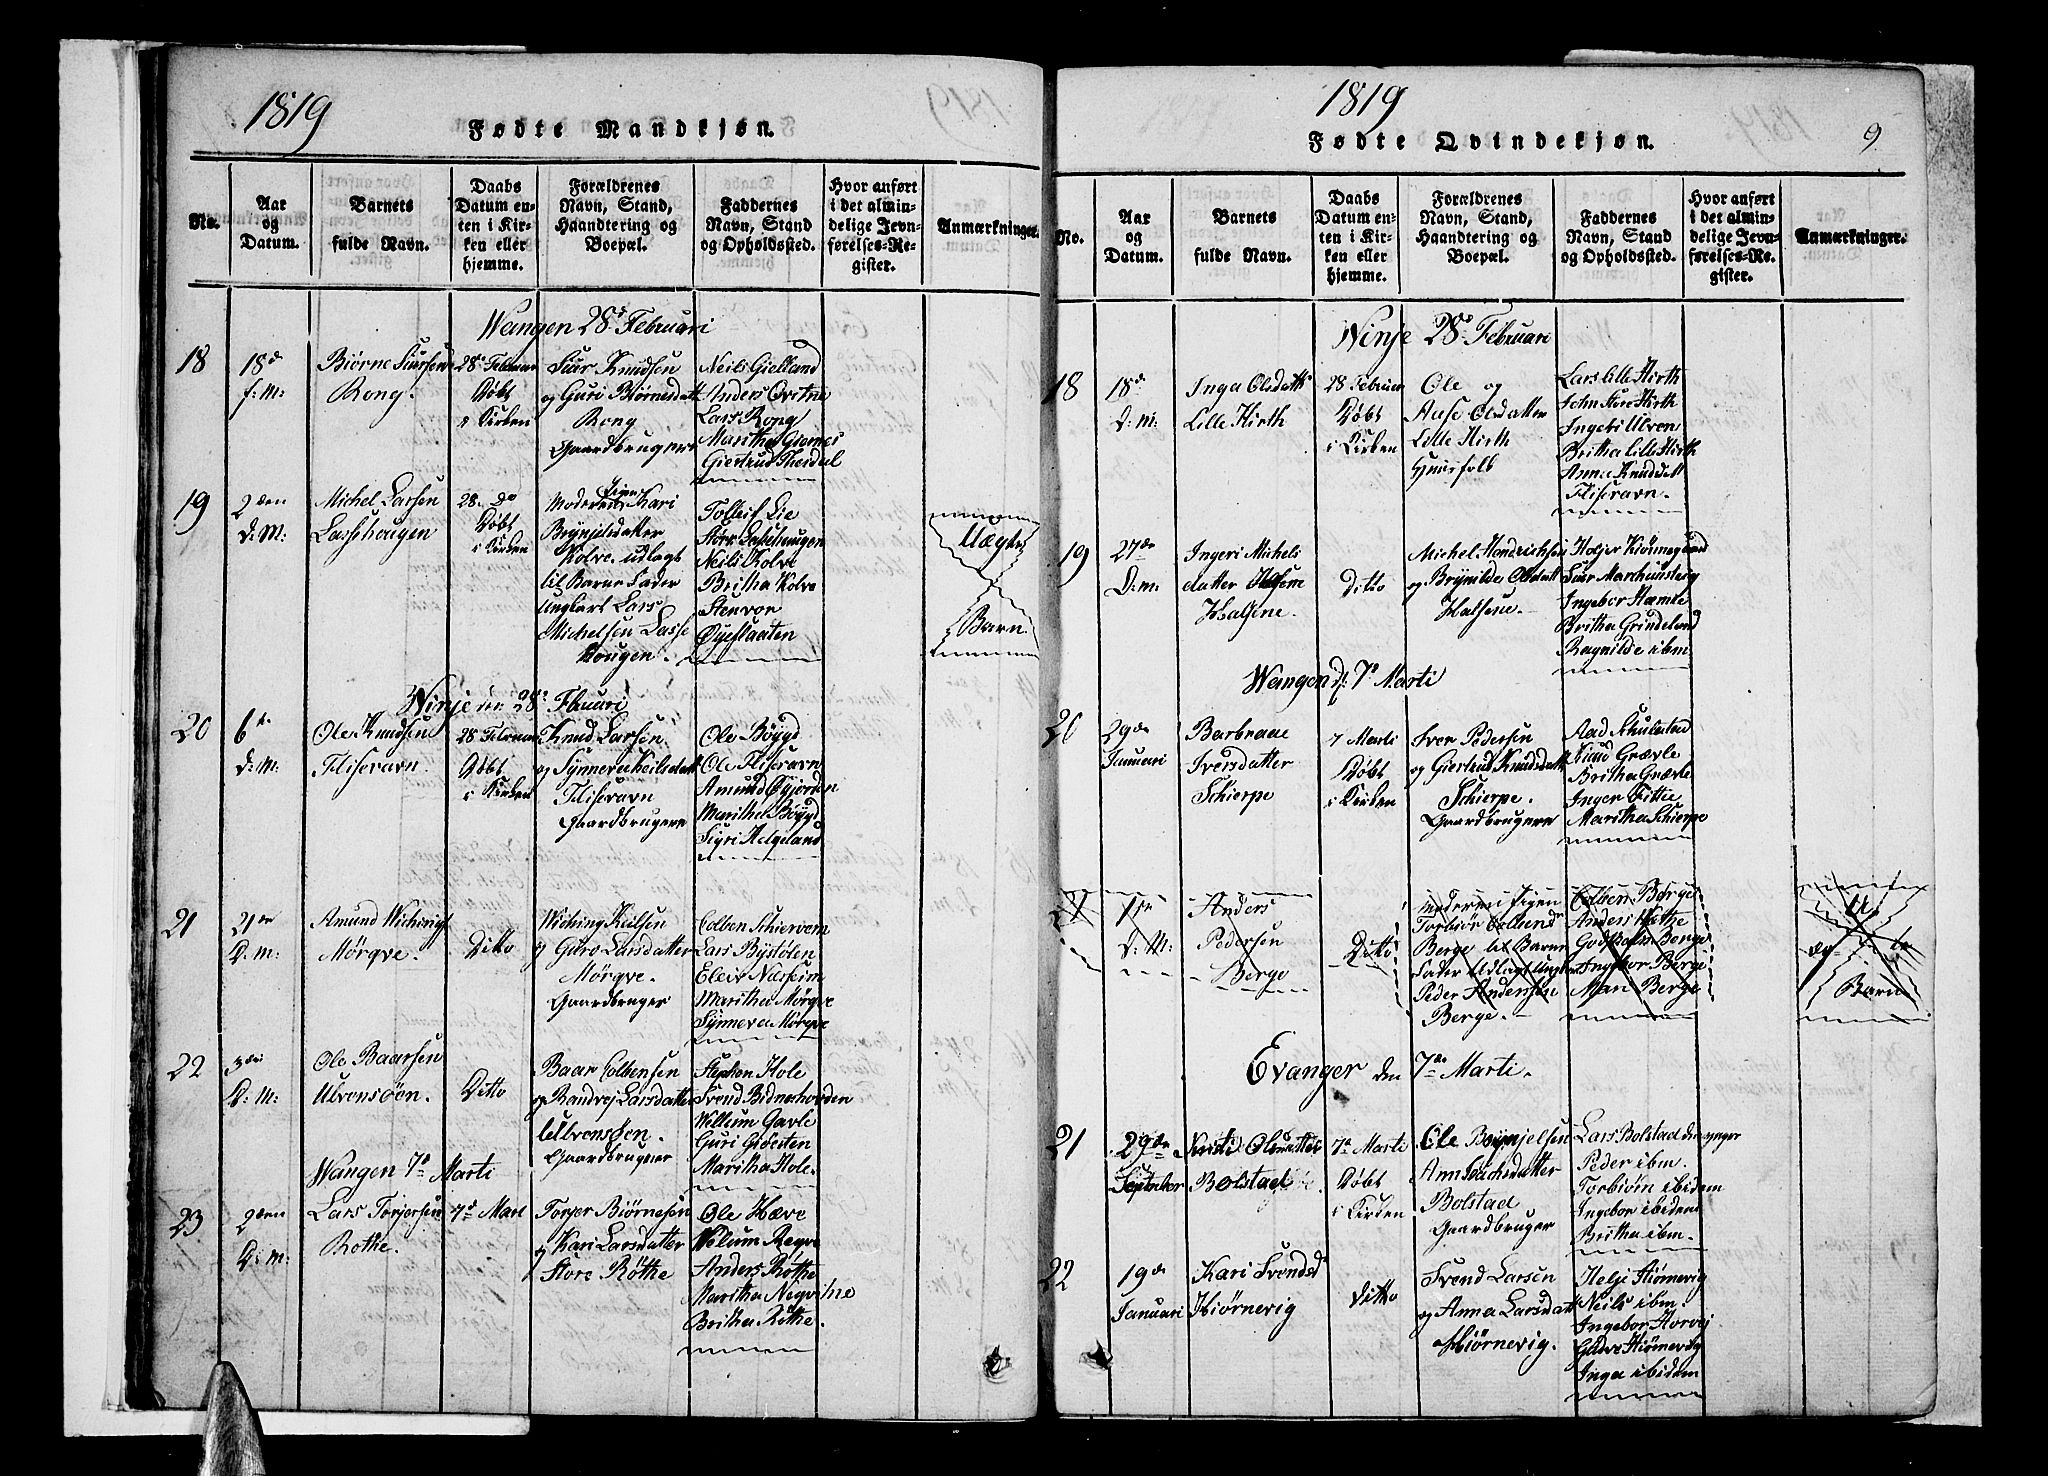 1819
Fødte Mandkjøn.
No.
Aar
og
Datum.
Barnets
fulde Navn.
Daabs
Datum en-
ten i Kir-
ken eller
hjemme.
Forældrenes
Navn, Stand,
Haandtering og
Boepæl.
Faddernes
Navn, Stand
og Opholdssted.
Hvor anført
i det almin-
delige Jevn-
førelses-Re-
gister.
Anmærkninger.
Wangen 28de Februari
18
18de
f: M:
Biørne Siursen
Rong.
28de Februar
Døbt
i Kirken
Siur Knudsen
og Guri Biørnesdatt
Rong
Gaardbrugere
Neils Gielland
Anders Qvitne
Lars Rong
Maritha Giernes
Giertrud Theidal
19
2den
D: M:
Michel Larsen
Lassehougen
28 do
Døbt
i Kirken
Moderen Pigen Kari
Brynjelsdatter
Kolve. udlagt
til Barne Fader
Ungkarl Lars
Michelsen Lasse
hougen.
Tolleif Lie
Lassehougen
Neils Kolve
Britha Kolve
Steenvor
Øyeflaaten
Uægte
Barn
Winje den 28de Februari
20
6te
D: M:
Ole Knudsen
Flisravn.
28 Februar
Døbt
i Kirken
Knud Larsen
og Synneve Neilsdatt
Flisravn
Gaardbrugere
Ole Bøygd
Ole Flisravn
Amund Øyjorden
Maritha Bøygd
Sigri Helgeland
21
2den
D: m:
Amund Wichings
Mørqve.
Ditto
Wiching Neilsen
og Guro Larsdatter
Mørqve.
Gaardbruger
Colben Schiervem
Lars Bystølen
Eleiv Næsheim
Maritha Mørqve
Synneva Mørqve
22
3die
D: M:
Ole Baarsen
Ulvensøen.
Ditto
Baar Colbensen
og Randvej Larsdatter
Ulvensøen.
Gaardbruger
Stephen Hole
Svend Bidneshovden
Wellum Gavle
Guri Gjesten
Maritha Hole.
Wangen 7de Marti
23
2den
D: m:
Lars Torjersen
Rothe.
7de Mart
Torjer Biørnesen
og Kari Larsdatter
Store Røthe
Ole Hæve
Wellum Reqve
Anders Røthe
Maritha Reqve
Britha Røthe.
1819
9
Fødte Qvindekjøn.
No.
Aar
og
Datum.
Barnets
fulde Navn.
Daabs
Datum en-
ten i Kir-
ken eller
hjemme.
Forældrenes
Navn, Stand,
Haandtering og
Boepæl.
Faddernes
Navn, Stand
og Opholdssted.
Hvor anført
i det almin-
delige Jevn-
førelses-Re-
gister.
Anmærkninger.
Winje 28de Februari
18
18de
D: m:
Inga Olsdatter
Lille Hirth
28 Februar
Døbt
i Kirken
Ole og
Aase Olsdatter
Lille Hirth
Huusfolk
Lars lille Hirth
John Store Hirth
Ingebr Ulven
Britha Lille Hirth
Anna Knudsdatt
Flisravn.
19
27de
D: m:
Ingeri Michels
datter
Halsene.
Ditto
Michel Hendrichsen
og Brynilde Olsdatt
Halsene.
Holjer Kiønnegaard
Siur Marchusteig
Ingebor Hæmre
Britha Grindeland
Ragnilde ibm
Wangen d: 7de Marti
20
29de
Januari
Barbraae
Iversdatter
Schierpe
7 Marti
Døbt
i Kirken
Iver Pedersen
og Giertrud Knudsdatt
Schierpe.
Gaardbrugere
Aad Schulestad
Knud Grævle
Britha Grævle
Inger Fittie
Maritha Schierpe
21
1ste
D: M:
Anders
Pedersen
Berge
Ditto
Moderen Pigen
Torbiør Colbensd
Berge til Barne
Fader Udlagt Ungkar
Peder Andersen
Berge.
Colben Berge
Anders Røthe
Godskalk Berge
Ingebor Berge
Mari Berge
Uægte
Barn
Evanger den 7de Marti.
21
29de
September
Kristi Olsdatter
Bolstad
7de Marti
Døbt
i Kirken
Ole Brynjelsen
Anna Isachsdatter
Bolstad
Gaardbruger
Lars Bolstad den ynger
Peder ibm.
Torbiørn ibidem
Ingebor ibidem
Britha ibm.
22
19de
Januari
Kari Svendsd
Hiørnevig
Ditto
Svend Larsen
og Anna Larsdatt
Hiørnevig.
Helje Hiørnevig
Neils ibm.
Ingebor Horvej
Gudve Hiørnevig
Inga ibidem